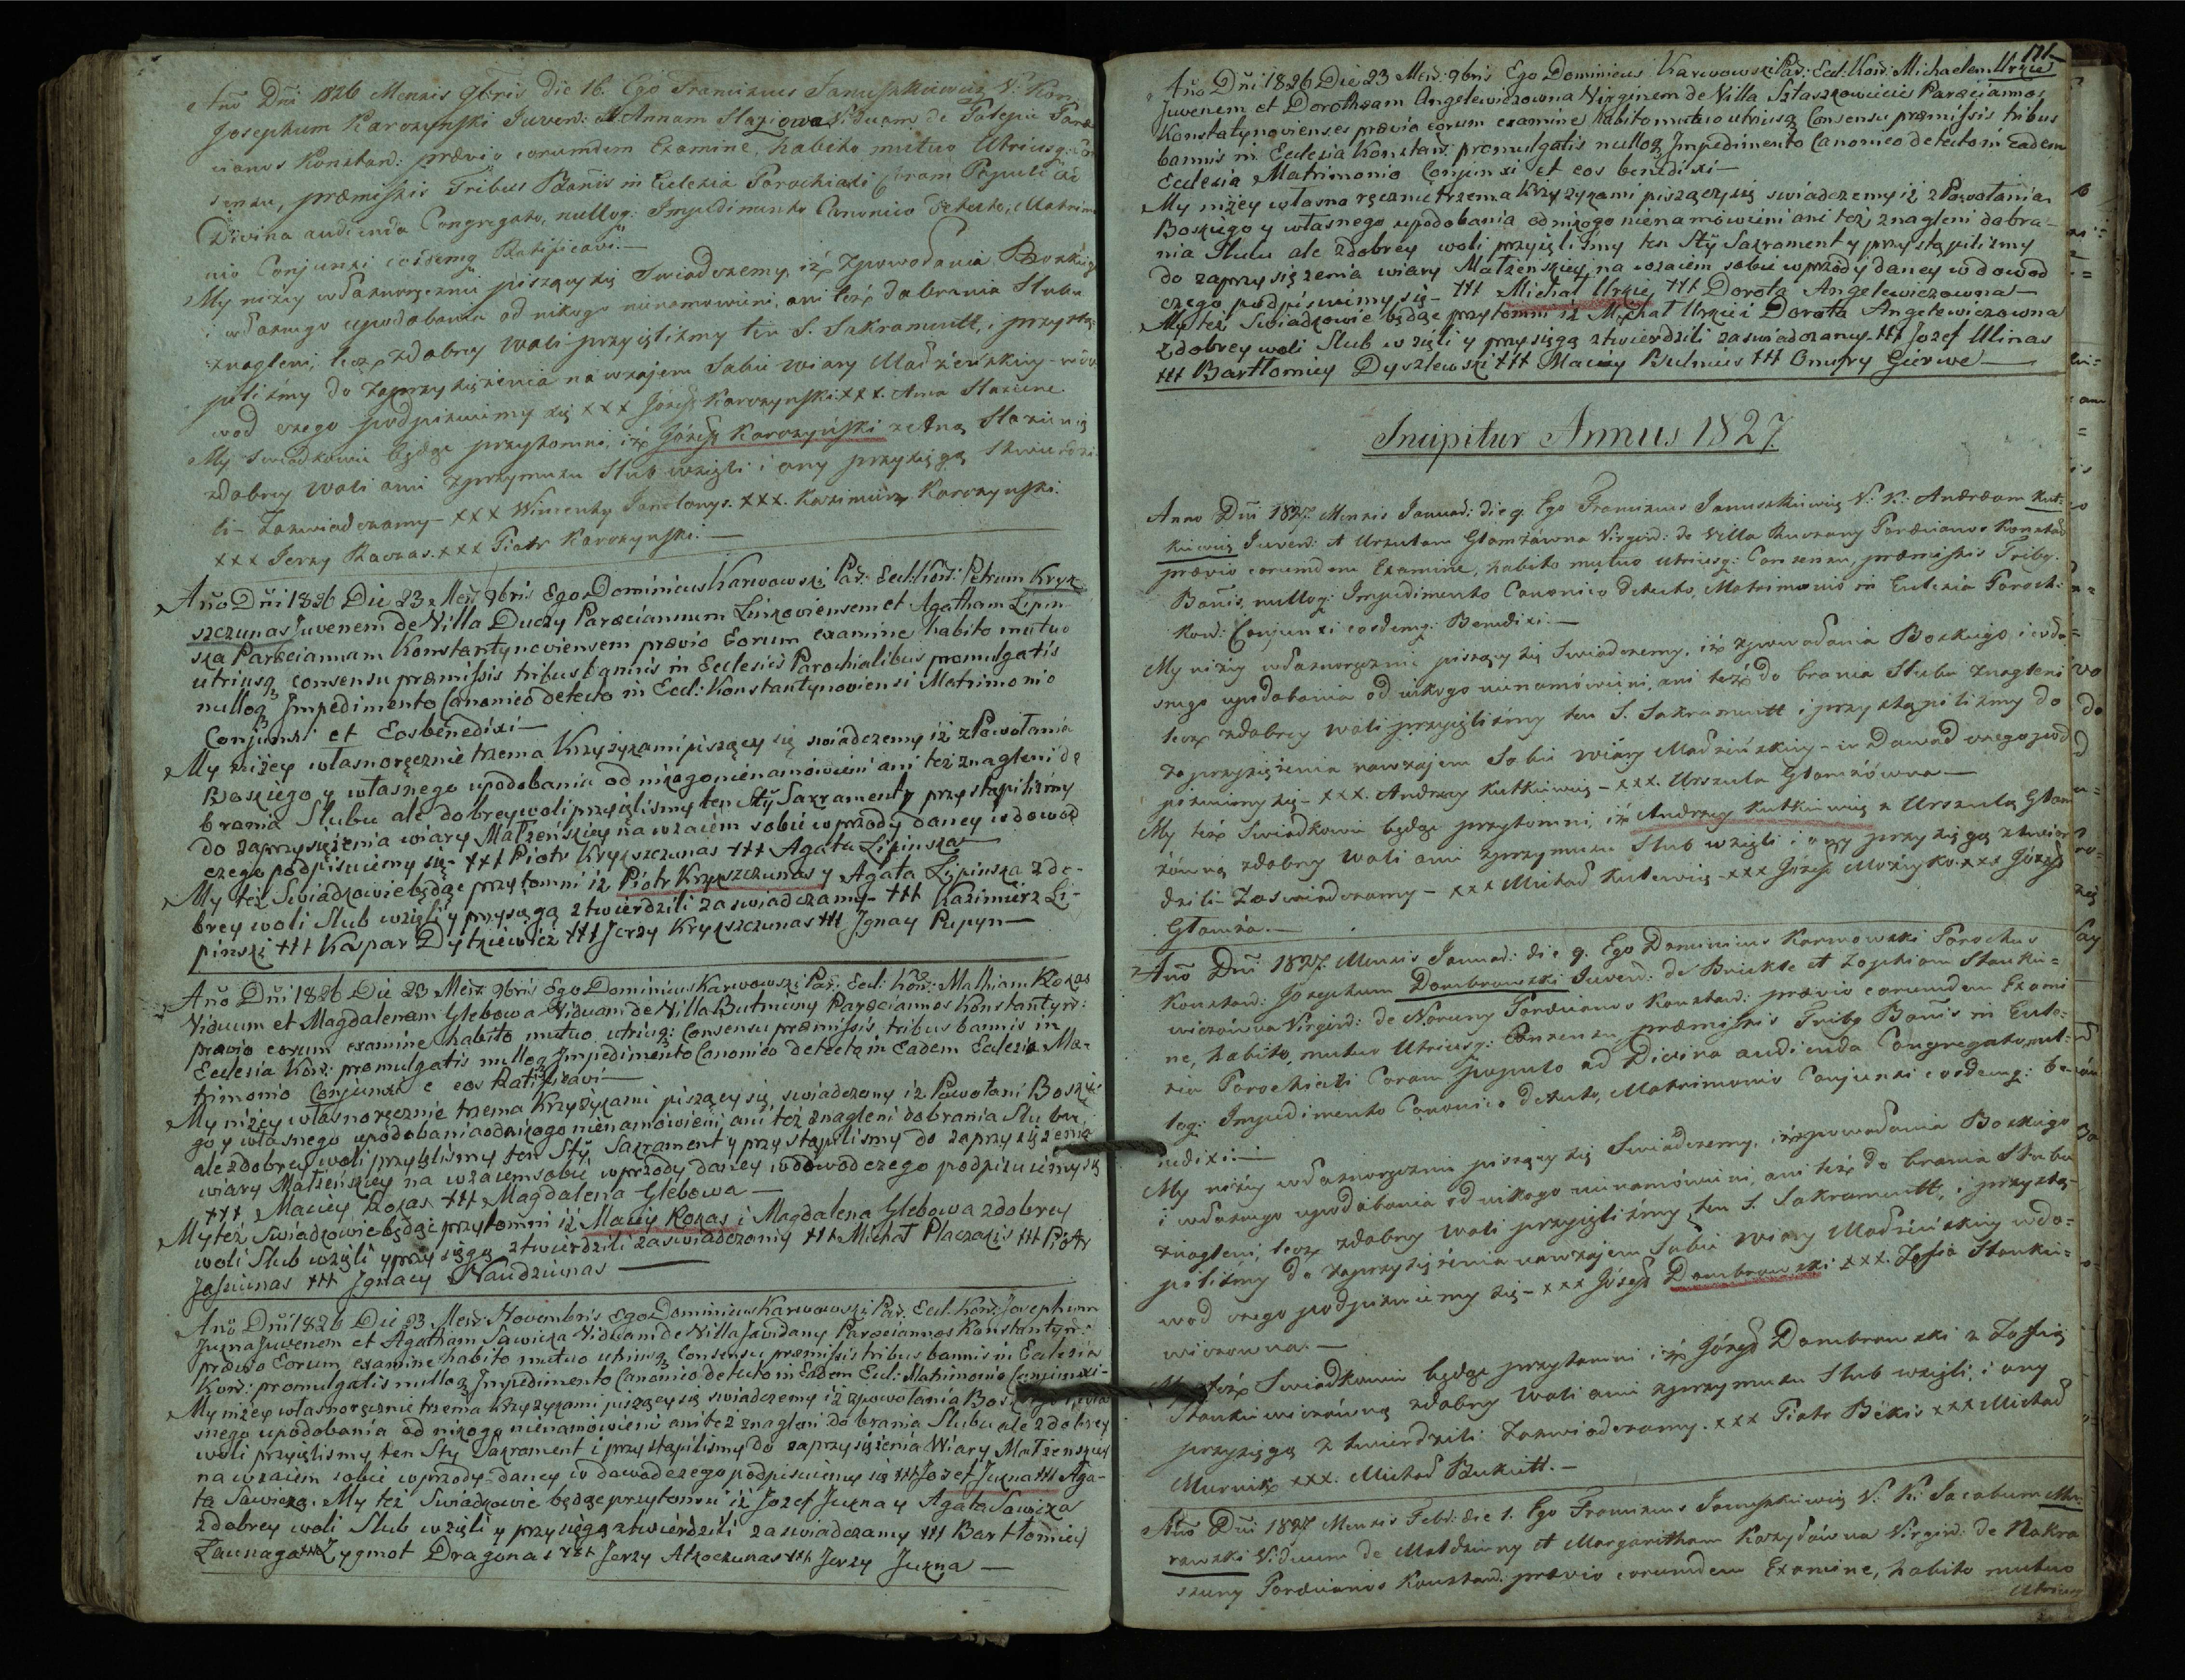 Año Dñi 1826 Mensis 9bris die 16. Ego Franciscus Januszkiewicz V: Kon:
Josephum Karczynſki Juven: et Annam Viduam de Paræ
cianos Konstant: prævio eorumdem Examine, habito mutuo Utriusq: Con
sensu, præmiſsis Tribus Bañis in Eclesia Parochiali Coram Populi ad
Divina audienda Congregato, nulloq: Impedimento Canonico detecto, Matrimo
nio Conjunxi eosdemq Ratificavi.—
My niżey własnoręcznie piszący się Swiadczemy, iż zpowołania Boskiego
i własnego upodobania od nikogo nienamowieni, ani też dobrania Slubu
znagleni, lecz zdobrey woli przyięliżmy ten S. Sakramentt, i przystą
piliżmy do zaprzysiężenia nawzajem Sobie wiary Małżeńskiey — w do
wod czego podpisuiemy się XXX Józeff Karczynſki XXX. Anna
My Swiadkowie będąc przytomni, iż Józeff Karczyńſki z Anną
zdobrey woli ani zprzymusu Slub wzięli i ony przysięgą stwierdzi
li — Zaswiadczamy — XXX Wincenty XXX. Kazimierz Karczynſki.
XXX Jerzy XXX Piotr Karczynſki.—
Año Dñi 1826 Die 23 Meñ: 9bris Ego Dominicus Karwowski Par: Ecl: Koñ: Petrum Kryk
szczunas Juvenem de Villa Duczy Paræcianum et Agatham Lipin
ska Paræciannam Konstantynoviensem prævio Eorum examine habito mutuo
utriusq consensu præmiſsis tribus bannis in Ecclesiis Parochialibus promulgatis
nulloq Impedimento Canonico detecto in Eccl: Konstantynoviensi Matrimonio
Conjunxi et Eos benedixi—
My niżey własnoręcznie trzema Krzyżykami piszący się swiadczemy iż z Powołania
Boskiego y własnego upodobania od nikogo nienamówieni ani też znagleni do
brania Slubu ale dobrey woli przyięlismy ten Sty Sakrament y przystąpilismy
do zaprzysiężenia wiary Małżeńskiey na wzaiem sobie wprzody daney w dowod
czego podpisuiemy się — ttt Piotr Krykszczunas ttt Agata Lipinska —
My też Swiadkowie będąc przytomni iż Piotr Krykszczunas y Agata Lipinska zdo-
brey woli Slub wzięli y przysięgą ztwierdzili zaswiadczamy — ttt Kazimierz Li-
pinski ttt Kaspar Dytkiewicz ttt Jerzy Krykszczunas ttt Jgnacy Pupyn —
Año Dñi 1826 Die 23 Meñ: 9bris Ego Dominicus Karwowski Par: Ecl: Koñ: Mathiam Kokas
Viduum et Magdalenam Glebowa Viduam de Villa Butniuny Paræcianos Konstantyn:
prævio eorum examine habito mutuo utriusq: Consensu præmiſsis tribus bannis in
Ecclesia Koñ: promulgatis nulloq Impedimento Canonico detecto in Eadem Eclesia Ma-
trimonio Conjunxi e eos Ratificavi—
My niżey własnoręcznie trzema Krzyżykami piszący się swiadczemy iż Powołani Boskie
go y własnego upodobania od nikogo nienamówieni, ani też znagleni dobrania Slubu
ale zdobrey woli przyięlismy ten Sty Sakrament y przystąpilismy do zaprzysiężenia
wiary Małżeńskiey na wzaiem sobie wprzody daney w dowod czego podpisuiemy się
ttt Maciey Kokas ttt Magdalena Glebowa—
My też Swiadkowie będąc przytomni iż Maciey Kokas i Magdalena Glebowa zdobrey
woli Slub wzięli y przysięgą ztwierdzili zaswiadczamy ttt Michał Placzakis ttt Piotr
Jasiunas ttt Jgnacy Naudziunas—
Año Dñi 1826 Die 23 Meñ: Novembris Ego Dominicus Karwowski Par: Ecl: Koñ: Josephum
Jukna Juvenem et Agatham Sawicka Viduam de Villa Paræcianos Konstantyn:
prævio Eorum examine habito mutuo utriusq Consensu præmiſsis tribus bannis in Ecclesia
Koñ: promulgatis nulloq Impedimento Canonico detecto in Eadem Ecl: Matrimonio Conjunxi—
My niżey własnoręcznie trzema Krzyżykami piszący się swiadczemy iż zpowołania Boskiego y wła
snego upodobania od nikogo nienamówieni ani też znagleni do brania Slubu ale zdobrey
woli przyięlismy ten Sty Sakrament i przystąpilismy do zaprzysiężenia Wiary Małżenskiey
na wzaiem sobie wprzody daney w dowod czego podpisuiemy się ttt Jozef Jukna ttt Aga-
ta Sawicka. My też Swiadkowie będąc przytomni iż Jozef Jukna y Agata Sawicka
zdobrey woli Slub wzięli y przysięgą ztwierdzili zaswiadczamy ttt Bartłomiey
Launaga ttt Zygmot Dragonas ttt Jerzy Atkoczunas ttt Jerzy Jukna —
171
Año Dñi 1826 Die 23 Meñ: 9bris Ego Dominicus Karwowski Par: Ecl: Koñ: Michaelem Urkie
Juvenem et Dorotheam Angelewiczowna Virginem de Villa Sztaszkowicie Paræcianos
Konstatynovienses prævio eorum examine habito mutuo utriusq Consensu præmiſsis tribus
bannis in Ecclesia Konstan: promulgatis nulloq Impedimento Canonico detecto in Eadem
Ecclesia Matrimonio Conjunxi et eos benedixi—
My niżey własno ręcznie trzema Krzyżykami piszący się swiadczemy iż z Powołania
Boskiego y własnego upodobania od nikogo nienamówieni ani też znagleni do bra-
nia Slubu ale zdobrey woli przyięliśmy ten Sty Sakrament y przystąpiliżmy
do zaprzysiężenia wiary Małżenskiey na wzaiem sobie wprzody daney w dowod
czego podpisuiemy się — ttt Michał Urkie ttt Dorota Angelewiczowna—
My też Swiadkowie będąc przytomni iż Michał Urkie i Dorota Angelewiczowna
zdobrey woli Slub wzięli y przysięgą ztwierdzili zaswiadczamy ttt Jozef Ulinas
ttt Bartłomiey Dyszlewski ttt Maciey Butnius ttt Onufry Gierwe—
Incipitur Annus 1827
Anno Dñi 1827 Mensis Januar: die 9. Ego Franciscus Januszkiewicz V: K: Andream Kut-
kiewicz Juven: et Ursulam Głamżówna Virgin: de Villa Paræcianos Konstant
prævio eorumdem Examine, habito mutuo Utriusq: Consensu, præmiſsis Tribq:
Bañis, nulloq: Impedimento Canonico detecto, Matrimonio in Eclesia Paroch:
Kon: Conjunxi eosdemq: Benedixi.—
My niżey własnoręcznie piszący się Swiadczemy, iż zpowołania Boskiego i wła-
snego upodobania od nikogo nienamówieni, ani też do brania Slubu znagleni
lecz zdobrey woli przyięliżmy ten S. Sakramentt i przystąpiliżmy do
zaprzysiężenia nawzajem Sobie wiary Małżeńskiey — w Dowod czego pod
pisuiemy się — XXX. Andrzey Kutkiewicz — XXX. Urszula Głamżówna —
My też Swiadkowie będąc przytomni, iż Andrzey Kutkiewicz z Urszulą Głam
żówną zdobrey woli ani zprzymusu Slub wzięli i ony przysięgą ztwier
dzili — Zaswiadczamy — XXX Michał Kutkiewicz XXX Józeff XXX Józeff
Głamża.—
Año Dñi 1827 Mensis Januar: die 9. Ego Dominicus Karwowski Parochus
Konstant: Josephum Dombrowski Juven: de et Zophiam Stankie-
wiczówna Virgin: de Noruny Paræcianos Konstant: prævio eorumdem Exami
ne, habito, mutuo Utriusq: Consensu præmiſsis Tribq Bañis in Ecle-
sia Parochiali Coram populo ad Divina audienda Congregato, nul-
loq: Impedimento Canonico detecto, Matrimonio Conjunxi eosdemq: be-
nedixi.—
My niżey własnoręcznie piszący się Swiadczemy, iż zpowołania Boskiego
i własnego upodobania od nikogo nienamówieni, ani też do brania Slubu
znagleni, lecz zdobrey woli przyięliżmy ten S. Sakramentt, i przystą-
piliżmy do zaprzysiężenia nawzajem Sobie wiary Małżeńskiey wdo-
wod czego podpisuiemy się — XXX Józeff Dombrowski XXX. Zofia Stankie-
wiczowna.—
My też Swiadkowie będąc przytomni iż Józeff Dombrowski z Zofią
Stankiewiczówną zdobrey woli ani zprzymusu Slub wzięli, i ony
przysięgą ztwierdzili Zaswiadczamy. XXX Piotr Bekis XXX Michał
Murnik XXX. Michał Bukutt.—
Año Dñi 1827 Mensis Febr: die 1. Ego Franciscus Januszkiewicz V: K: Jacobum Mu-
rawski Viduum de et Margaritham Virgin: de Nakra
szuny Paræcianos Konstant: prævio eorumdem Examine, habito mutuo
Utriusq